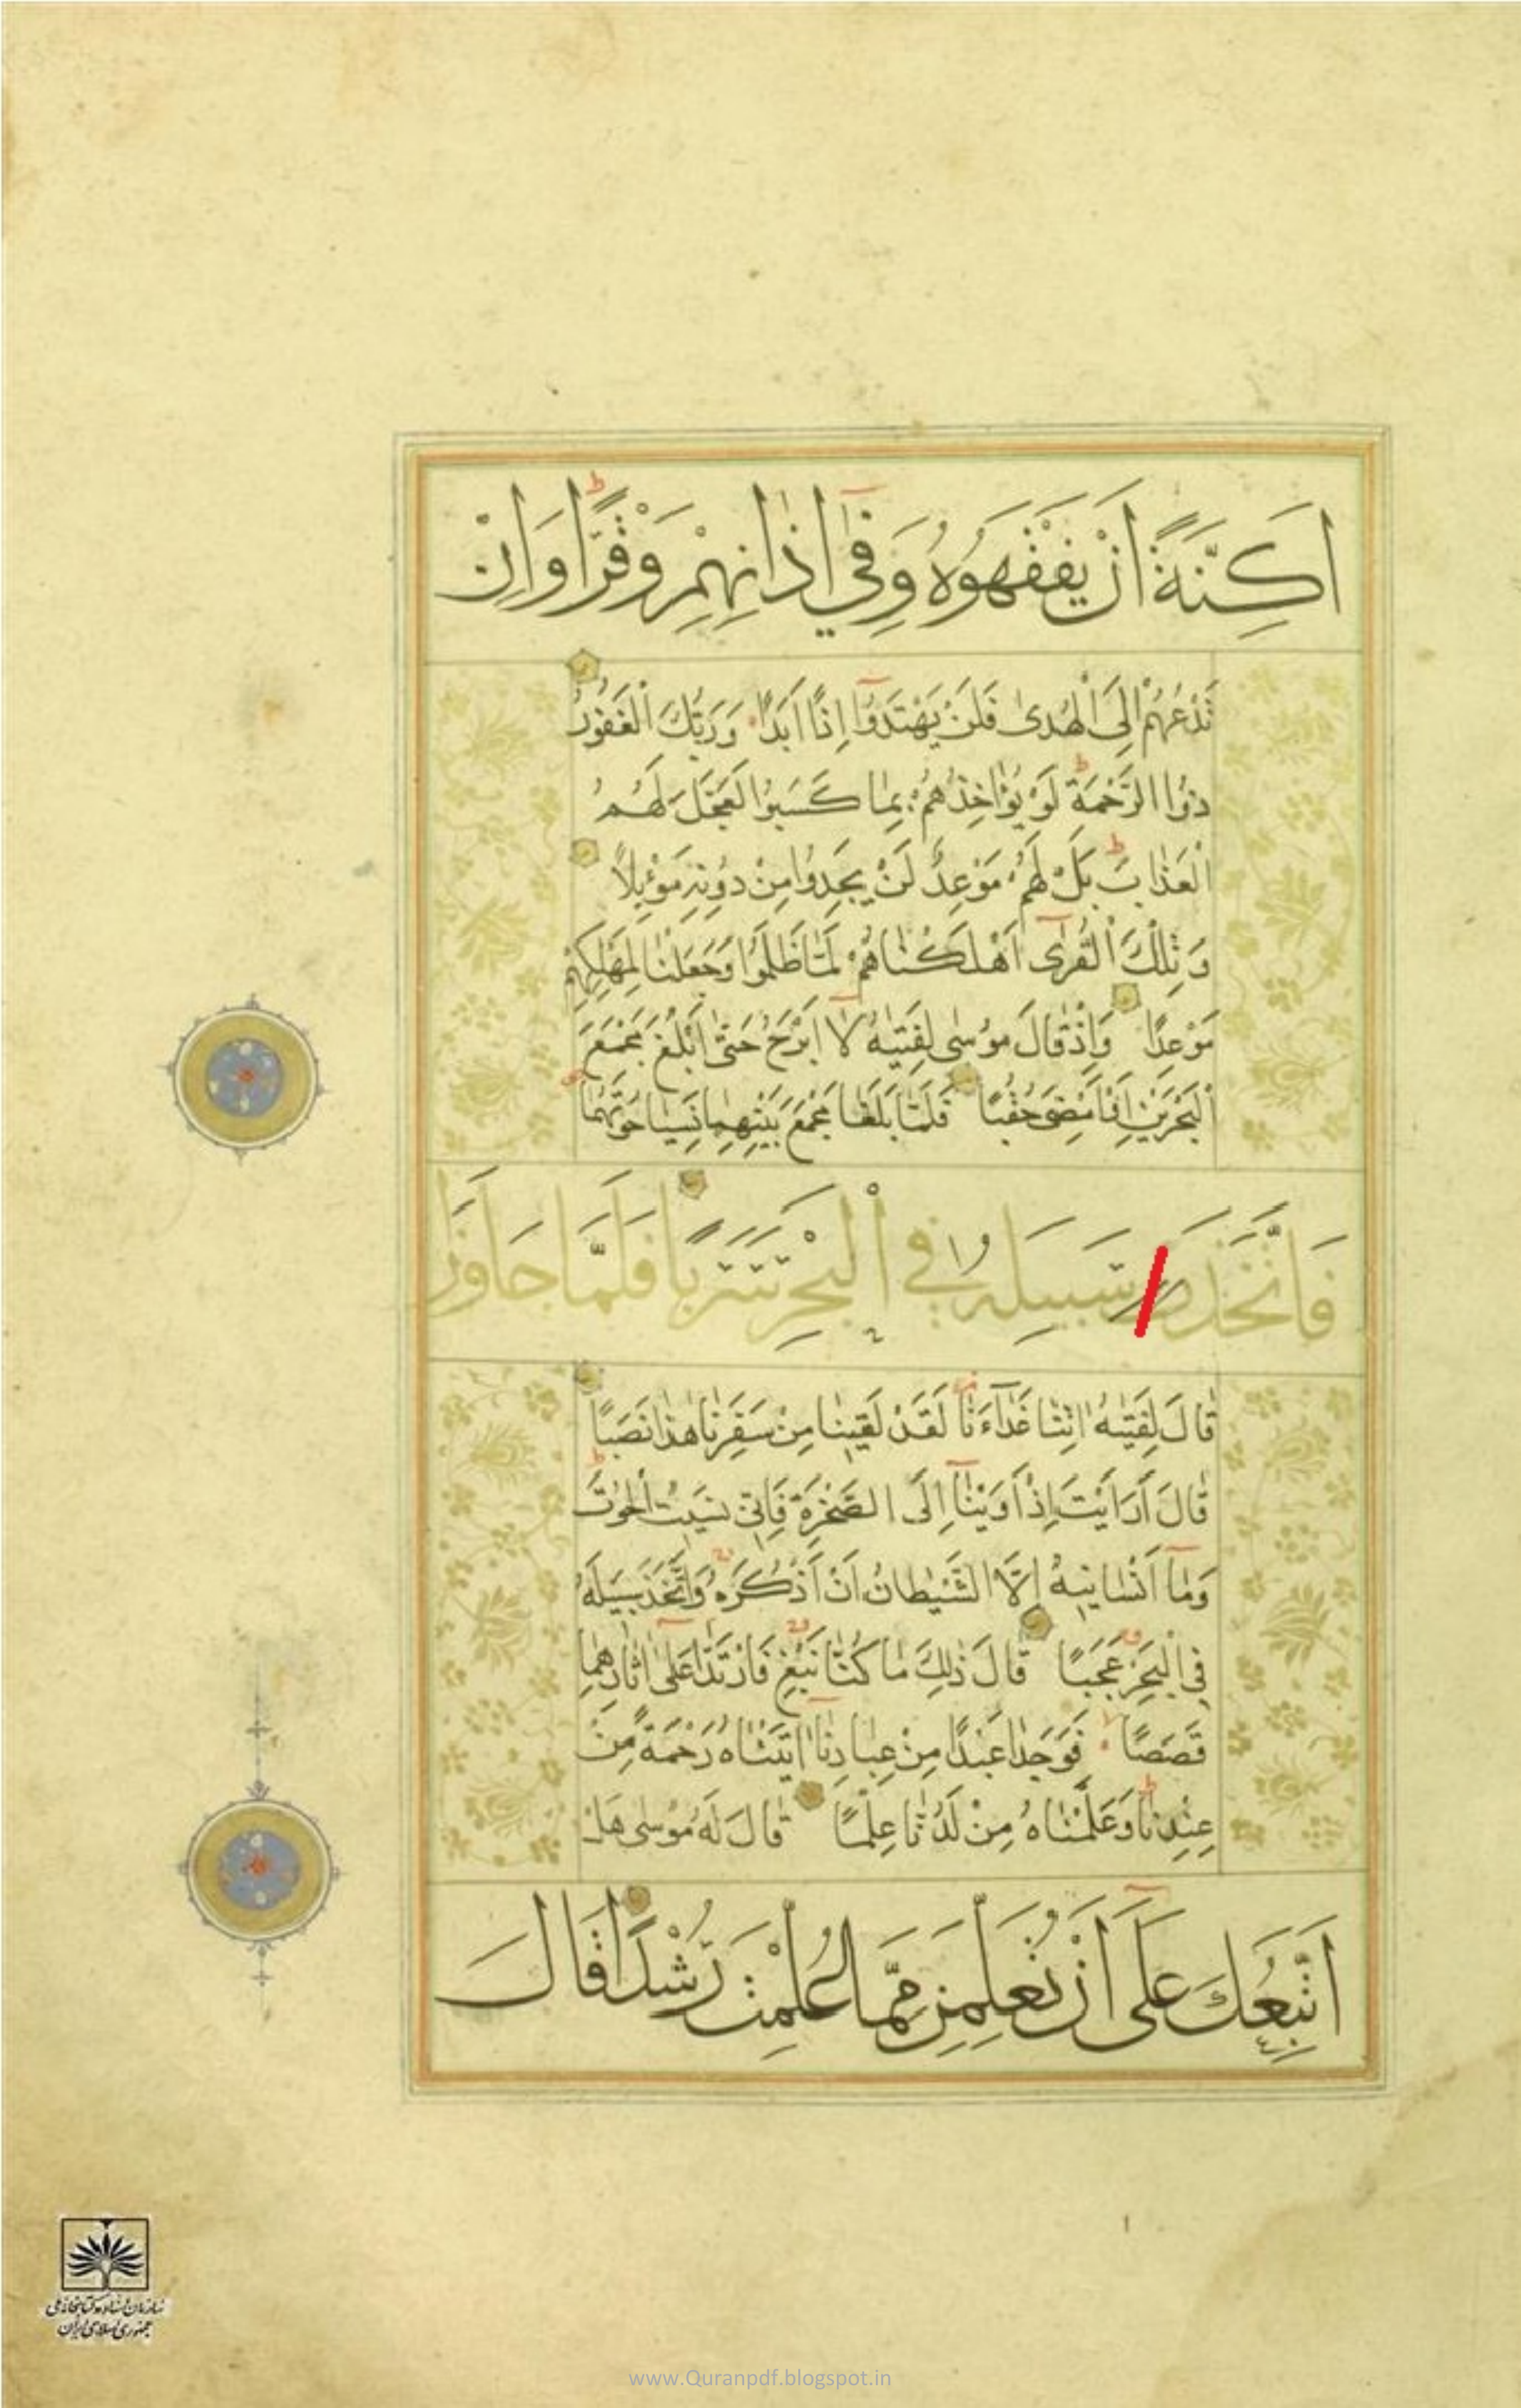 اَكِنَّةً اَنْ يَفْقَهُوهُ وَفِي اٰذَانِهِمْ وَقْرًا وَاِنْ
تَدْعُهُمْ اِلَى الْهُدٰى فَلَنْ يَهْتَدُوا اِذًا اَبَدًا وَرَبُّكَ الْغَفُورُ
ذُوا الرَّحْمَةِ لَوْ يُؤَاخِذُهُمْ بِمَا كَسَبُوا لَعَجَّلَ لَهُمُ
الْعَذَابَ بَلْ لَهُمْ مَوْعِدٌ لَنْ يَجِدُوا مِنْ دُونِهِ مَوْئِلًا
وَتِلْكَ الْقُرٰى اَهْلَكْنَاهُمْ لَمَّا ظَلَمُوا وَجَعَلْنَا لِمَهْلِكِهِمْ
مَوْعِدًا وَاِذْ قَالَ مُوسٰى لِفَتٰيهُ لَا اَبْرَحُ حَتّٰى اَبْلُغَ مَجْمَعَ
الْبَحْرَيْنِ اَوْ اَمْضِيَ حُقُبًا فَلَمَّا بَلَغَا مَجْمَعَ بَيْنِهِمَا نَسِيَا حُوتَهُمَا
فَاتَّخَذَ سَبِيلَهُ فِي الْبَحْرِ سَرَبًا فَلَمَّا جَاوَزَا
قَالَ لِفَتٰيهُ اٰتِنَا غَدَاءَنَا لَقَدْ لَقِينَا مِنْ سَفَرِنَا هٰذَا نَصَبًا
قَالَ اَرَاَيْتَ اِذْ اَوَيْنَا اِلَى الصَّخْرَةِ فَاِنِّي نَسِيتُ الْحُوتَ
وَمَا اَنْسَانِيهُ اِلَّا الشَّيْطَانُ اَنْ اَذْكُرَهُ وَاتَّخَذَ سَبِيلَهُ
فِي الْبَحْرِ عَجَبًا قَالَ ذٰلِكَ مَا كُنَّا نَبْغِ فَارْتَدَّا عَلٰى اٰثَارِهِمَا
قَصَصًا فَوَجَدَا عَبْدًا مِنْ عِبَادِنَا اٰتَيْنَاهُ رَحْمَةً مِنْ
عِنْدِنَا وَعَلَّمْنَاهُ مِنْ لَدُنَّا عِلْمًا قَالَ لَهُ مُوسٰى هَلْ
اَتَّبِعُكَ عَلٰى اَنْ تُعَلِّمَنِ مِمَّا عُلِّمْتَ رُشْدًا قَالَ
سازمان اسناد و کتابخانه ملی
جمهوری اسلامی ایران
www.Quranpdf.blogspot.in